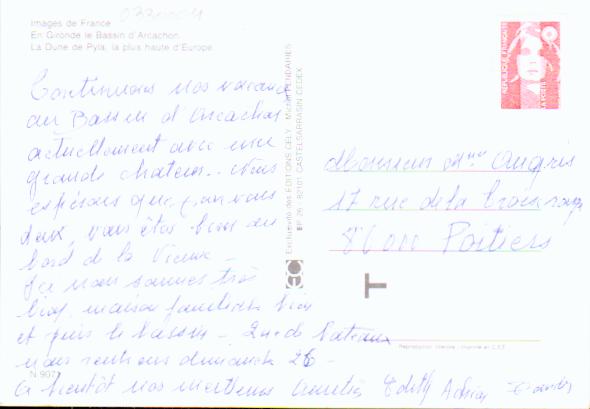 0330004
Images de France
En Gironde le Bassin d'Arcachon.
La Dune de Pyla, la plus haute d'Europe.
Continuons nos vacances
au Bassin d'Arcachon
actuellement avec une
grande chaleur.. nous
espérons que pour vous
deux, vous êtes bien au
bord de la Vienne -
Ici nous sommes très
bien, maison familiale bien
et puis le bassin - que de bateaux
nous rentrons dimanche 26 -
A bientôt nos meilleurs Aurélia Edith Adrien
N 907
Exclusivité des EDITIONS CELY - Michel PENDARIES
BP 26 - 82101 CASTELSARRASIN CEDEX
REPUBLIQUE FRANÇAISE
LA POSTE
Monsieur et Mme Augris
17 rue de la Croix rouge
86000 Poitiers
Reproduction interdite - Imprimé en C.E.E.